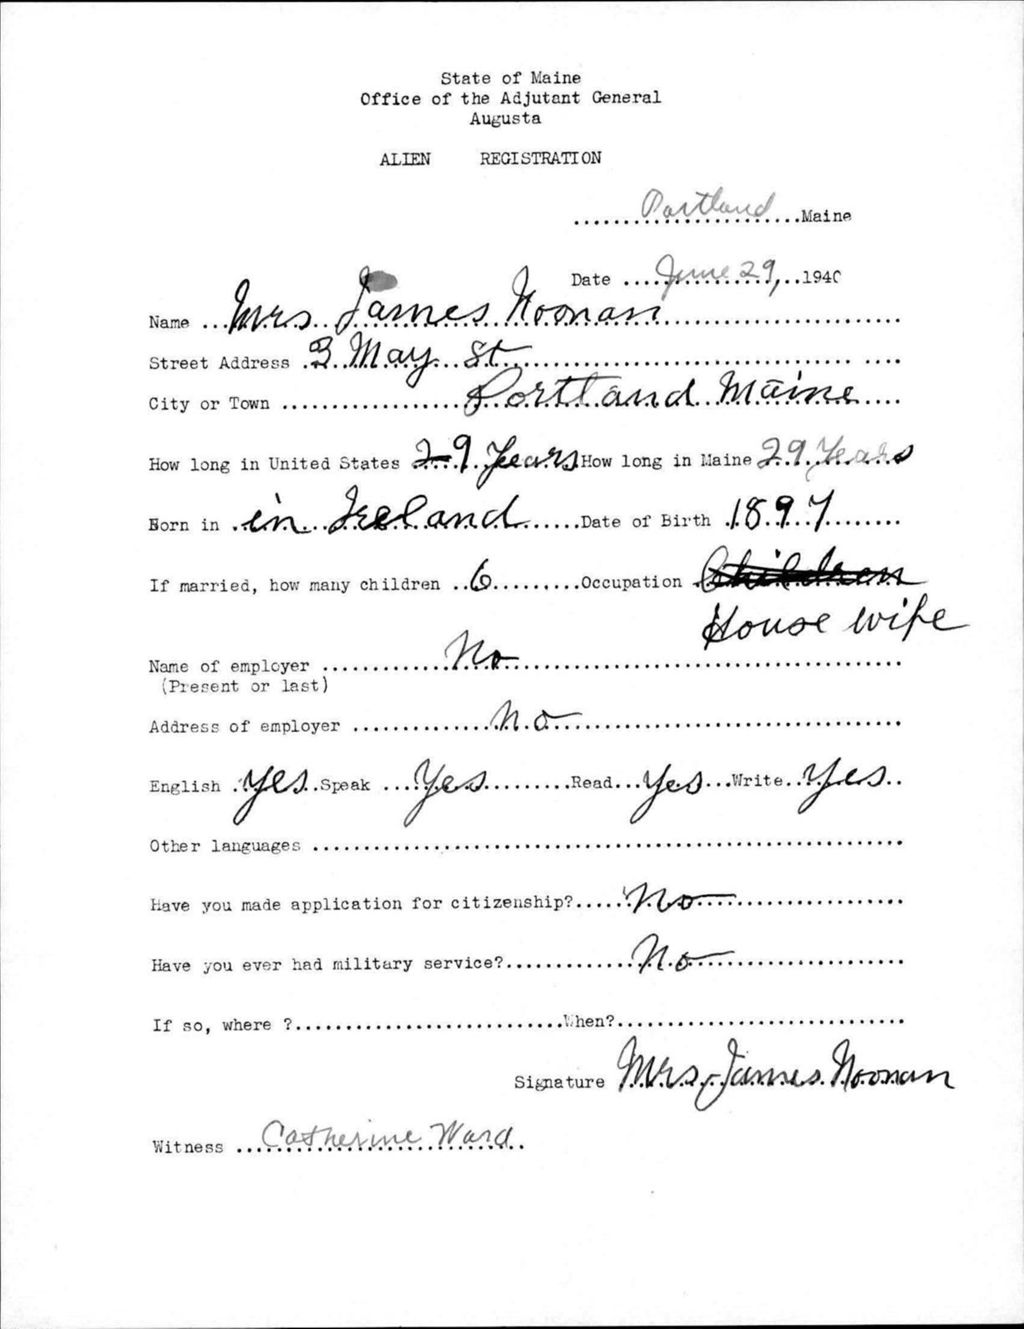 State of Maine
Office of the Adjutant General
Augusta
ALIEN REGISTRATION
......Portland......Maine
Date ....June 29,..1940
Name ...Mrs. James Noonan......
Street Address .3 May St......
City or Town ......Portland Maine....
How long in United States 29 Years How long in Maine 29 Years
Born in .in Ireland......Date of Birth .1897........
If married, how many children ..6.........Occupation Children
House wife
Name of employer ............No......
(Present or last)
Address of employer ..............No......
English .yes..Speak ...Yes..........Read...Yes...Write..Yes..
Other languages ......
Have you made application for citizenship?.....No......
Have you ever had military service?............No......
If so, where ?...........................When?.............................
Signature Mrs. James Noonan
Witness ...Catherine Ward..